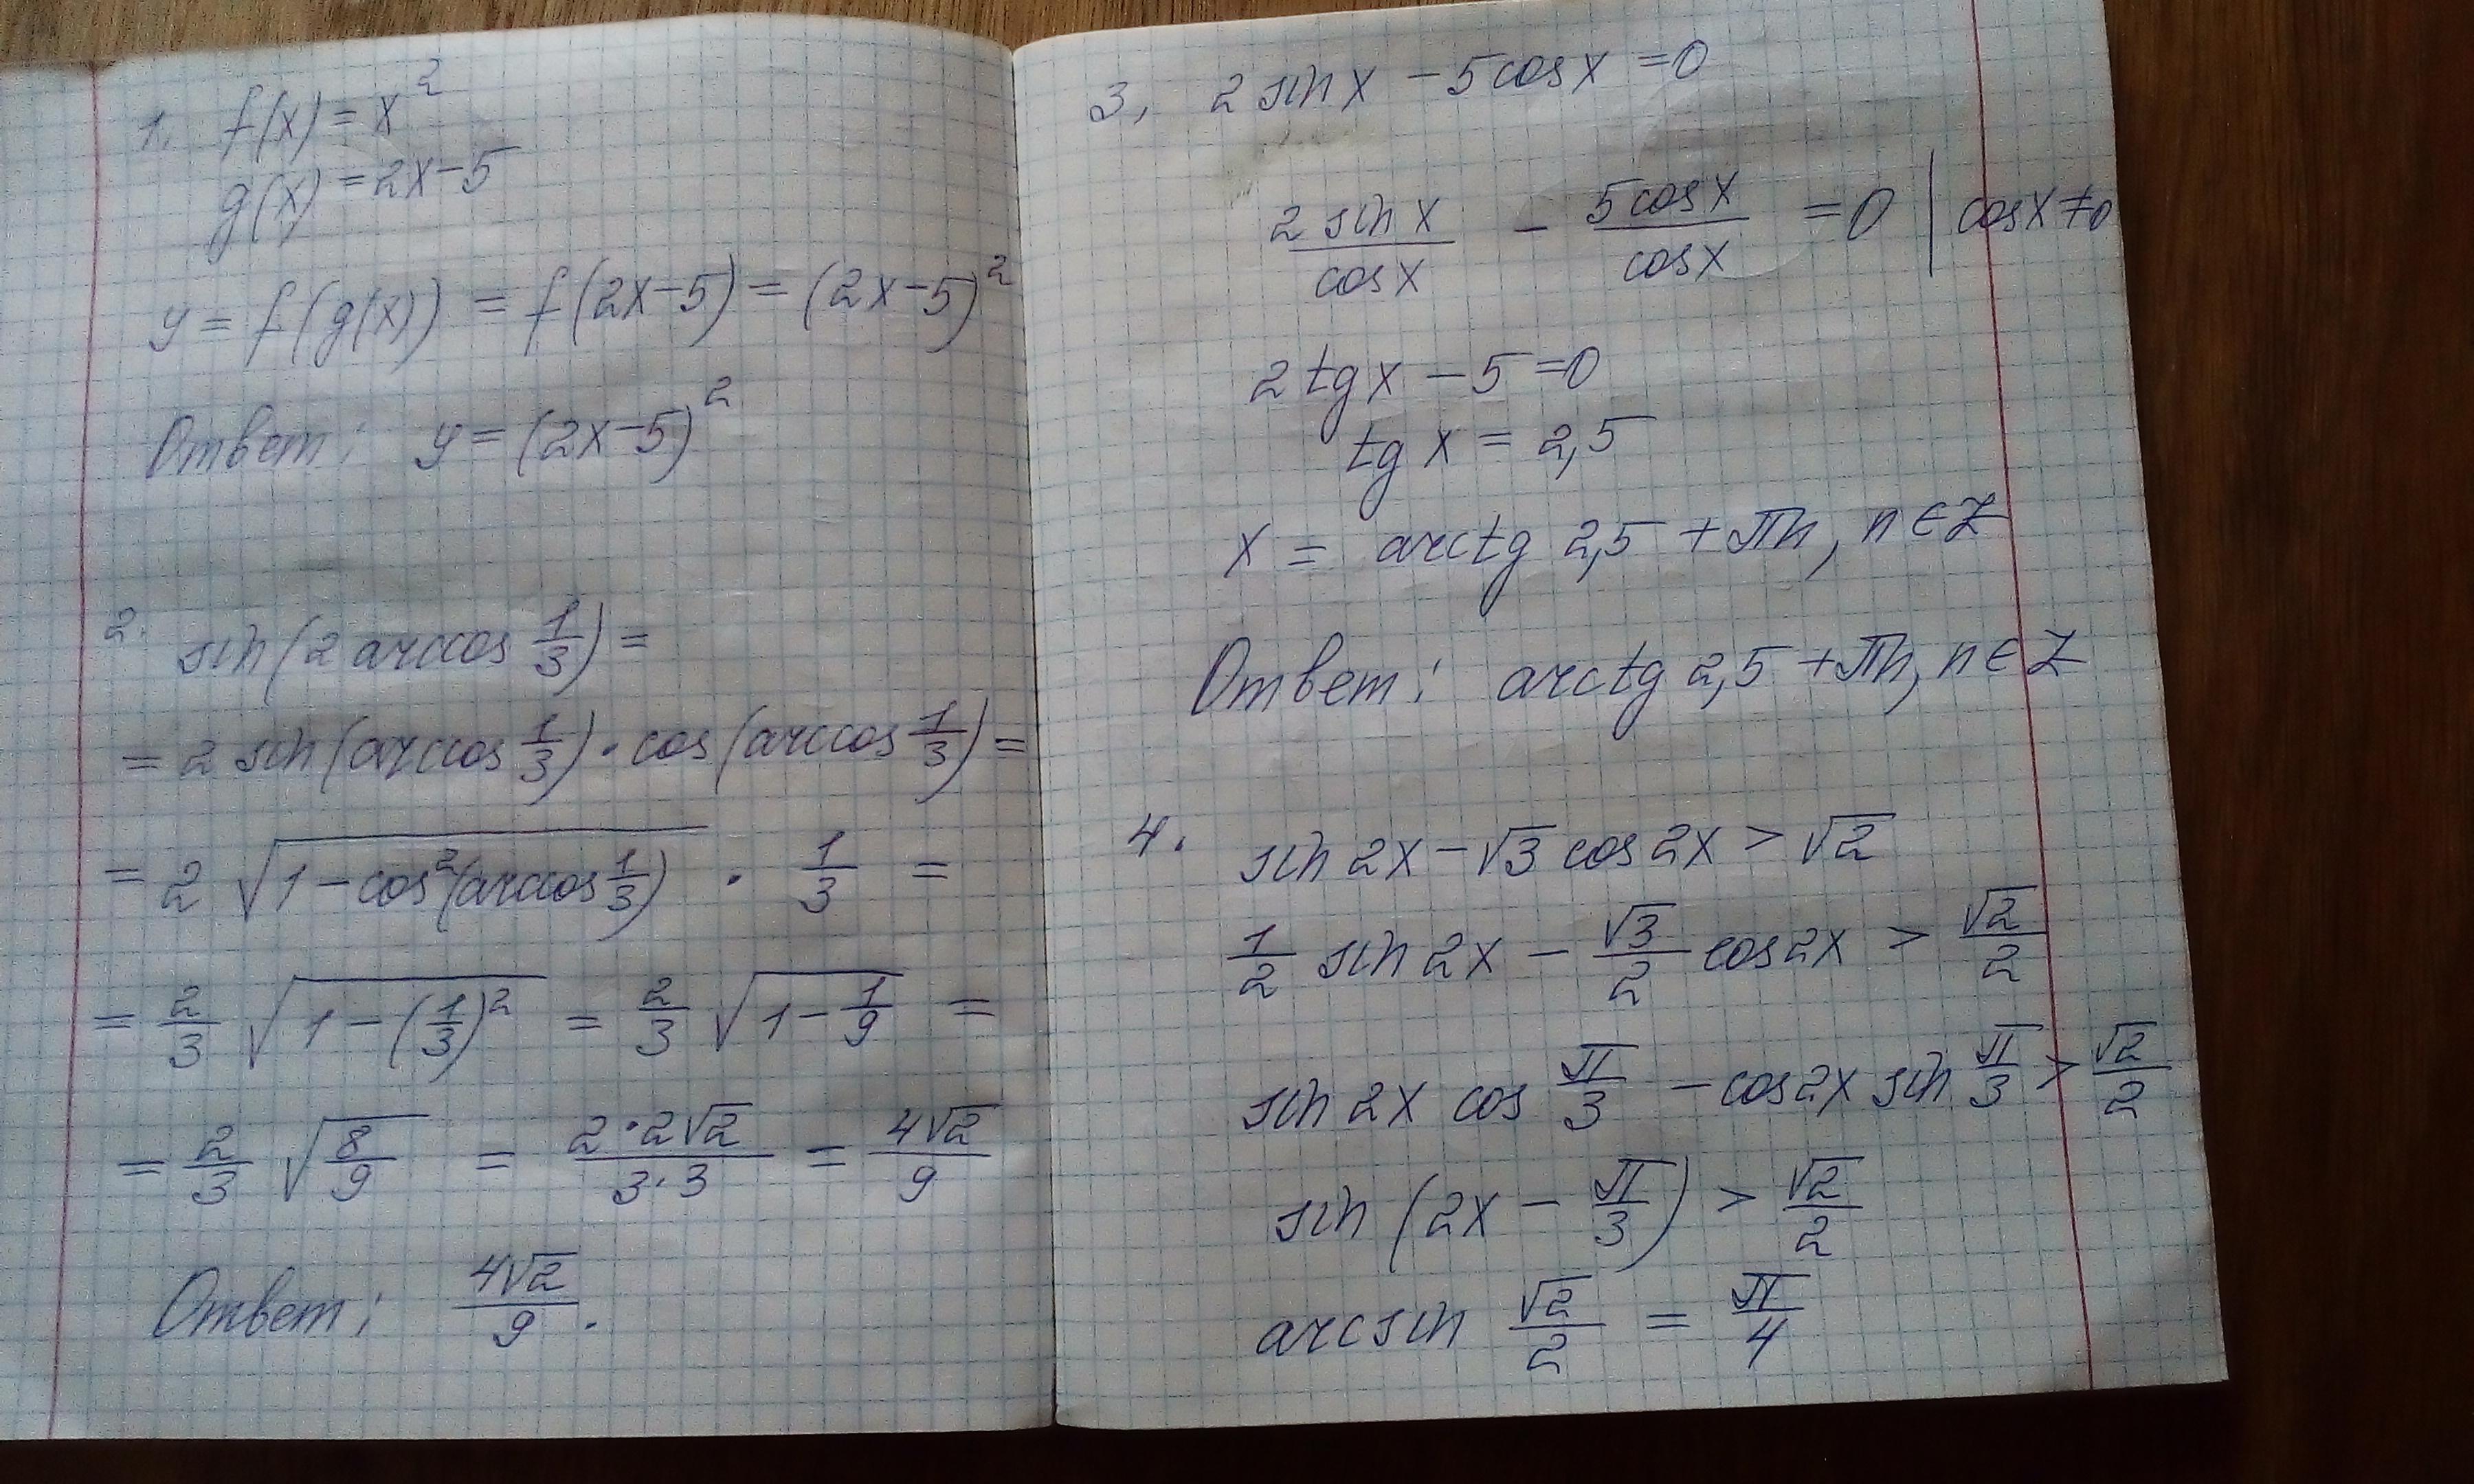 1. f(x) = x²
g(x) = 2x-5
y = f(g(x)) = f(2x-5) = (2x-5)²
Ответ: y = (2x-5)²
2. sin(2 arccos 1/3) =
= 2 sin(arccos 1/3) · cos(arccos 1/3) =
= 2 √(1 - cos²(arccos 1/3)) · 1/3 =
= 2/3 √(1 - (1/3)²) = 2/3 √(1 - 1/9) =
= 2/3 √(8/9) = (2·2√2)/(3·3) = 4√2/9
Ответ: 4√2/9.
3, 2 sin x - 5 cos x = 0
2 sin x/cos x - 5 cos x/cos x = 0 | cos x ≠ 0
2 tg x - 5 = 0
tg x = 2,5
x = arctg 2,5 + πn, n ∈ Z
Ответ: arctg 2,5 + πn, n ∈ Z
4. sin 2x - √3 cos 2x > √2
1/2 sin 2x - √3/2 cos 2x > √2/2
sin 2x cos π/3 - cos 2x sin π/3 > √2/2
sin (2x - π/3) > √2/2
arcsin √2/2 = π/4